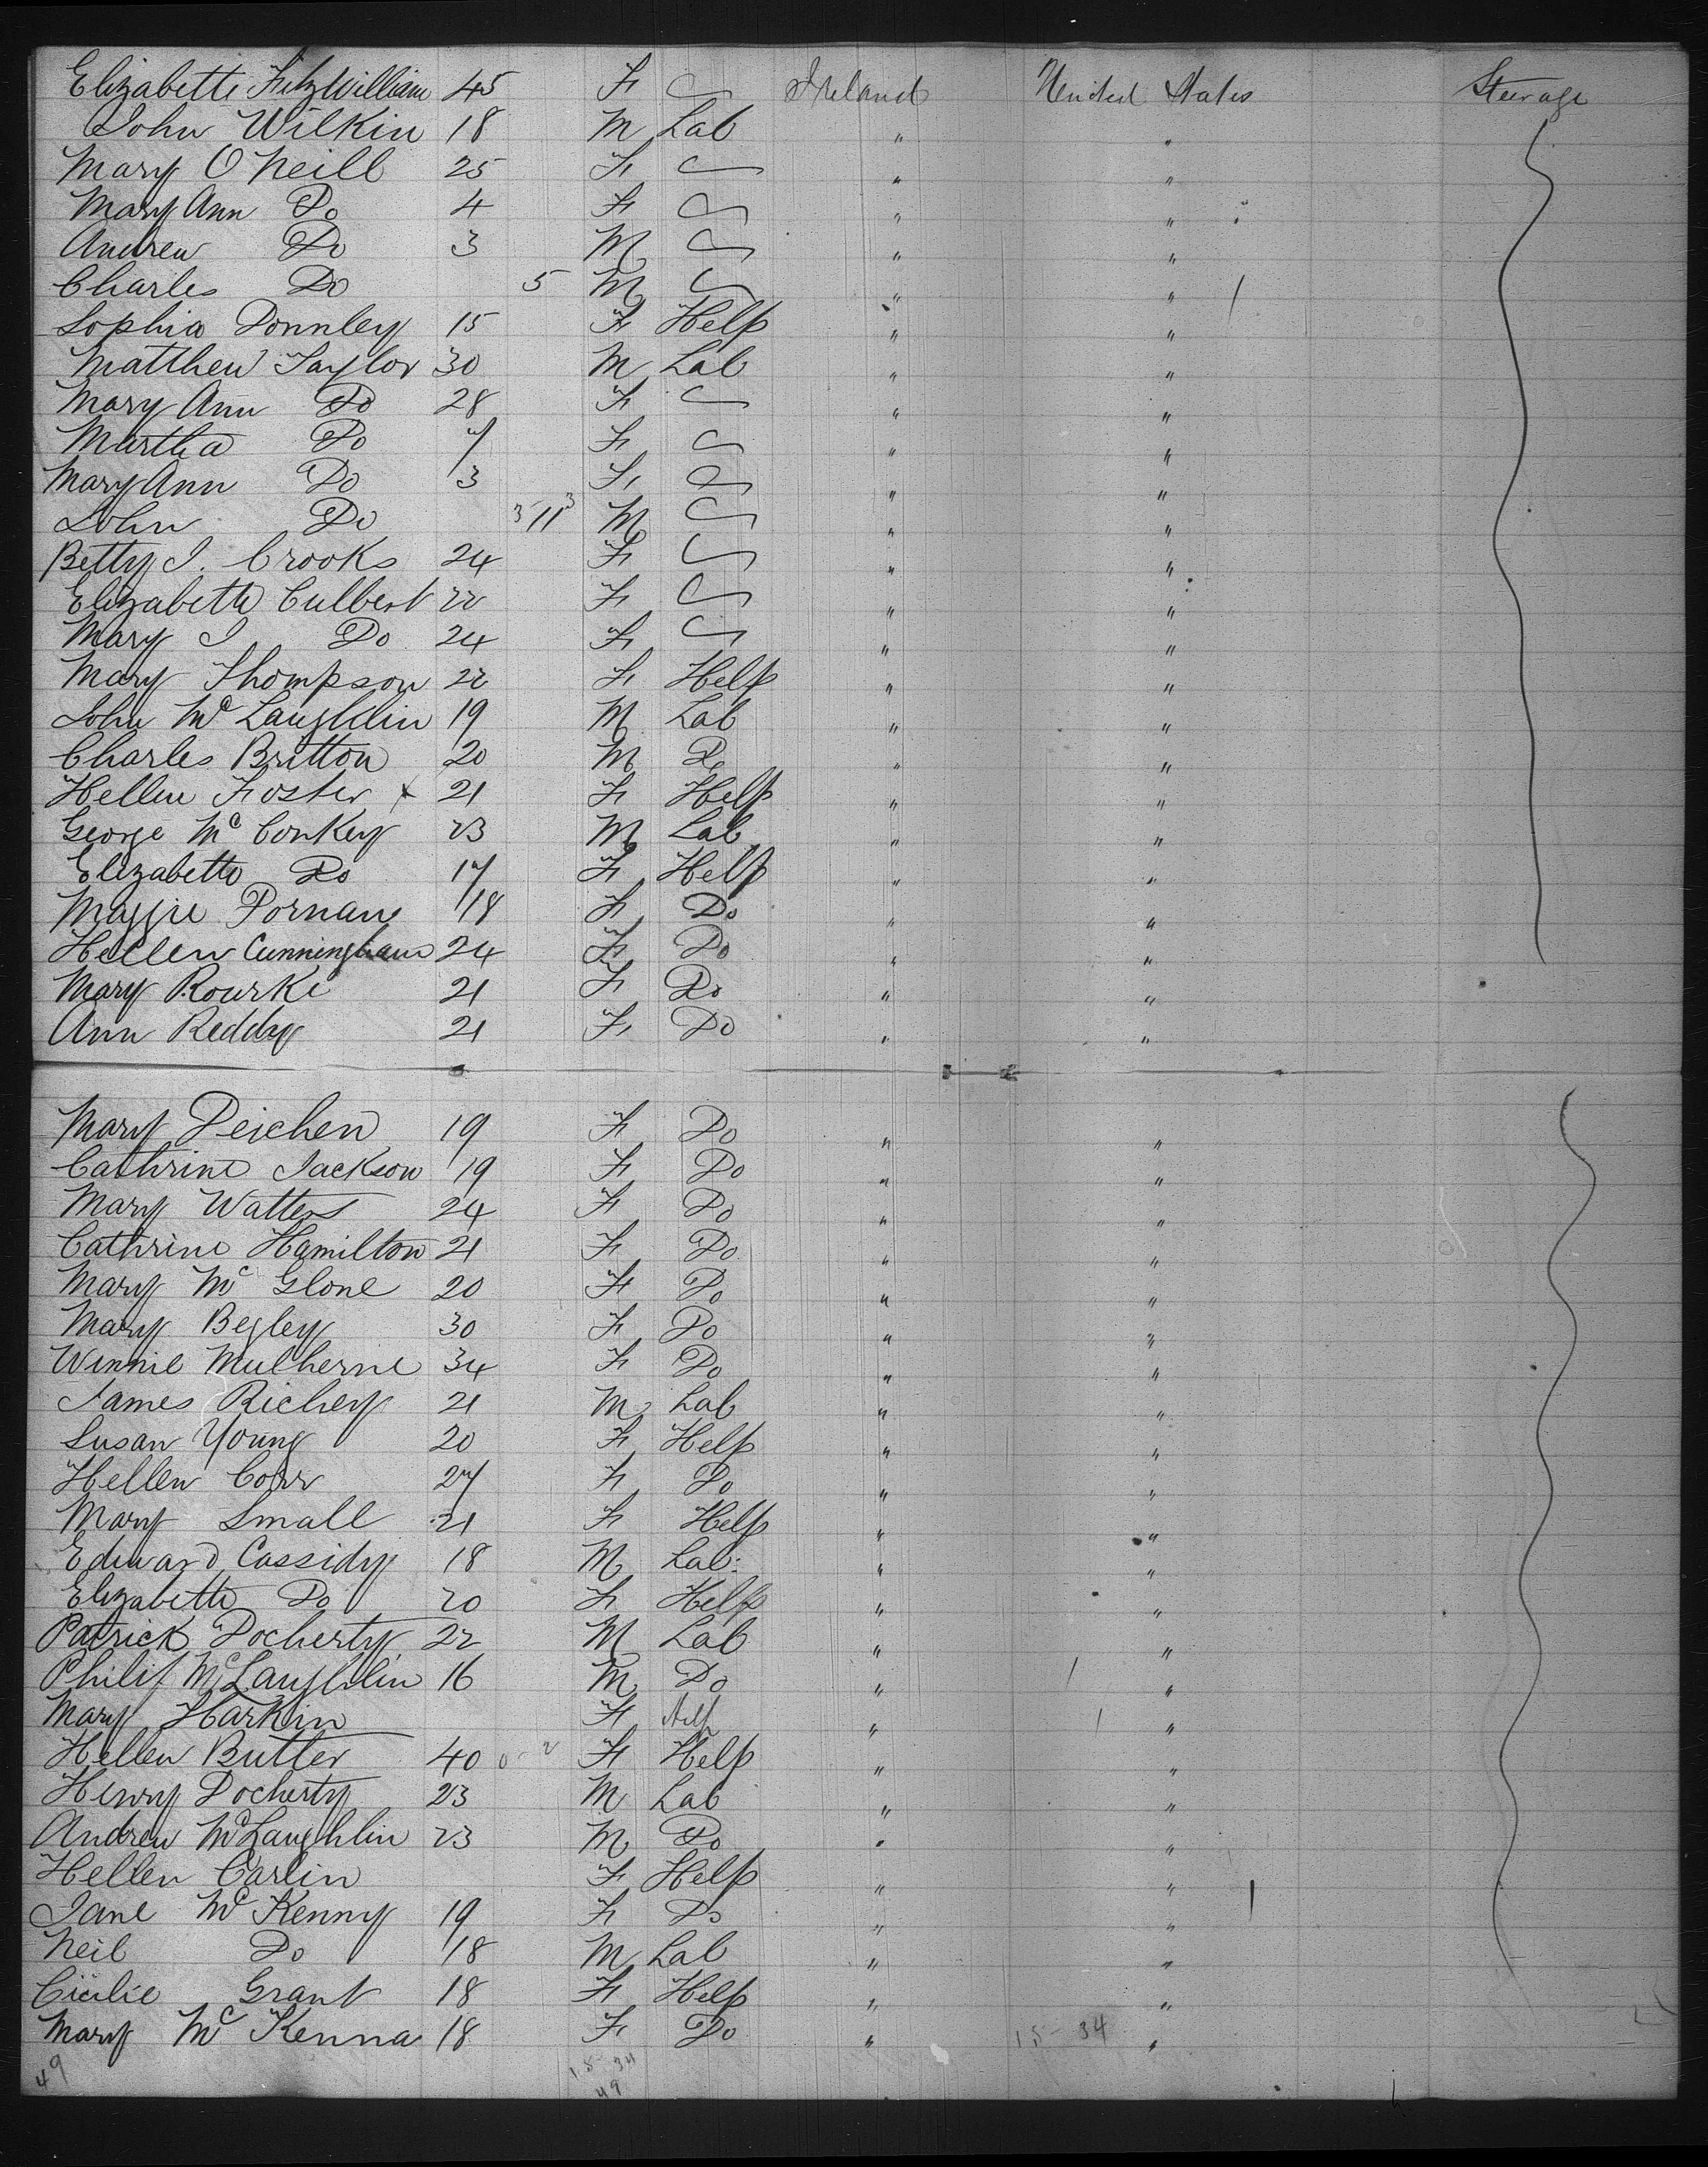 Elizabeth FitzWilliam 45 F Ireland United States Steerage
John Wilkin 18 M Lab " "
Mary O'Neill 25 F " "
Mary Ann Do 4 F " "
Andrew Do 3 M " "
Charles Do 5 M " "
Sophia Donnley 15 F Help " "
Matthew Taylor 30 M Lab " "
Mary Ann Do 28 F " "
Martha Do 7 F " "
Mary Ann Do 3 F " "
John Do 11 M " "
Betty J. Crooks 24 F " "
Elizabeth Culbert 22 F " "
Mary J Do 24 F " "
Mary Thompson 22 F Help " "
John Mc Laughlin 19 M Lab " "
Charles Britton 20 M Do " "
Hellen Foster x 21 F Help " "
George Mc Conkey 23 M Lab " "
Elizabeth Do 17 F Help " "
Maggie Dornan 18 F Do " "
Hellen Cunningham 24 F Do " "
Mary Rourke 21 F Do " "
Ann Reddy 21 F Do " "
Mary Deichen 19 F Do " "
Cathrine Jackson 19 F Do " "
Mary Watters 24 F Do " "
Cathrine Hamilton 21 F Do " "
Mary Mc Glone 20 F Do " "
Mary Begley 30 F Do " "
Winnie Mulherne 34 F Do " "
James Richey 21 M Lab " "
Susan Young 20 F Help " "
Hellen Corr 27 F Do " "
Mary Small 21 F Help " "
Edward Cassidy 18 M Lab: " "
Elizabeth Do 20 F Help " "
Patrick Docherty 22 M Lab " "
Philip McLaughlin 16 M Do " "
Mary Harkin F Help " "
Hellen Butler 40 F Help " "
Henry Docherty 23 M Lab " "
Andrew McLaughlin 23 M Do " "
Hellen Carlin F Help " "
Jane Mc Kenny 19 F Do " "
Neil Do 18 M Lab " "
Cicilie Grant 18 F Help " "
Mary Mc Kenna 18 F Do " 15-34 "
49 15-34
49